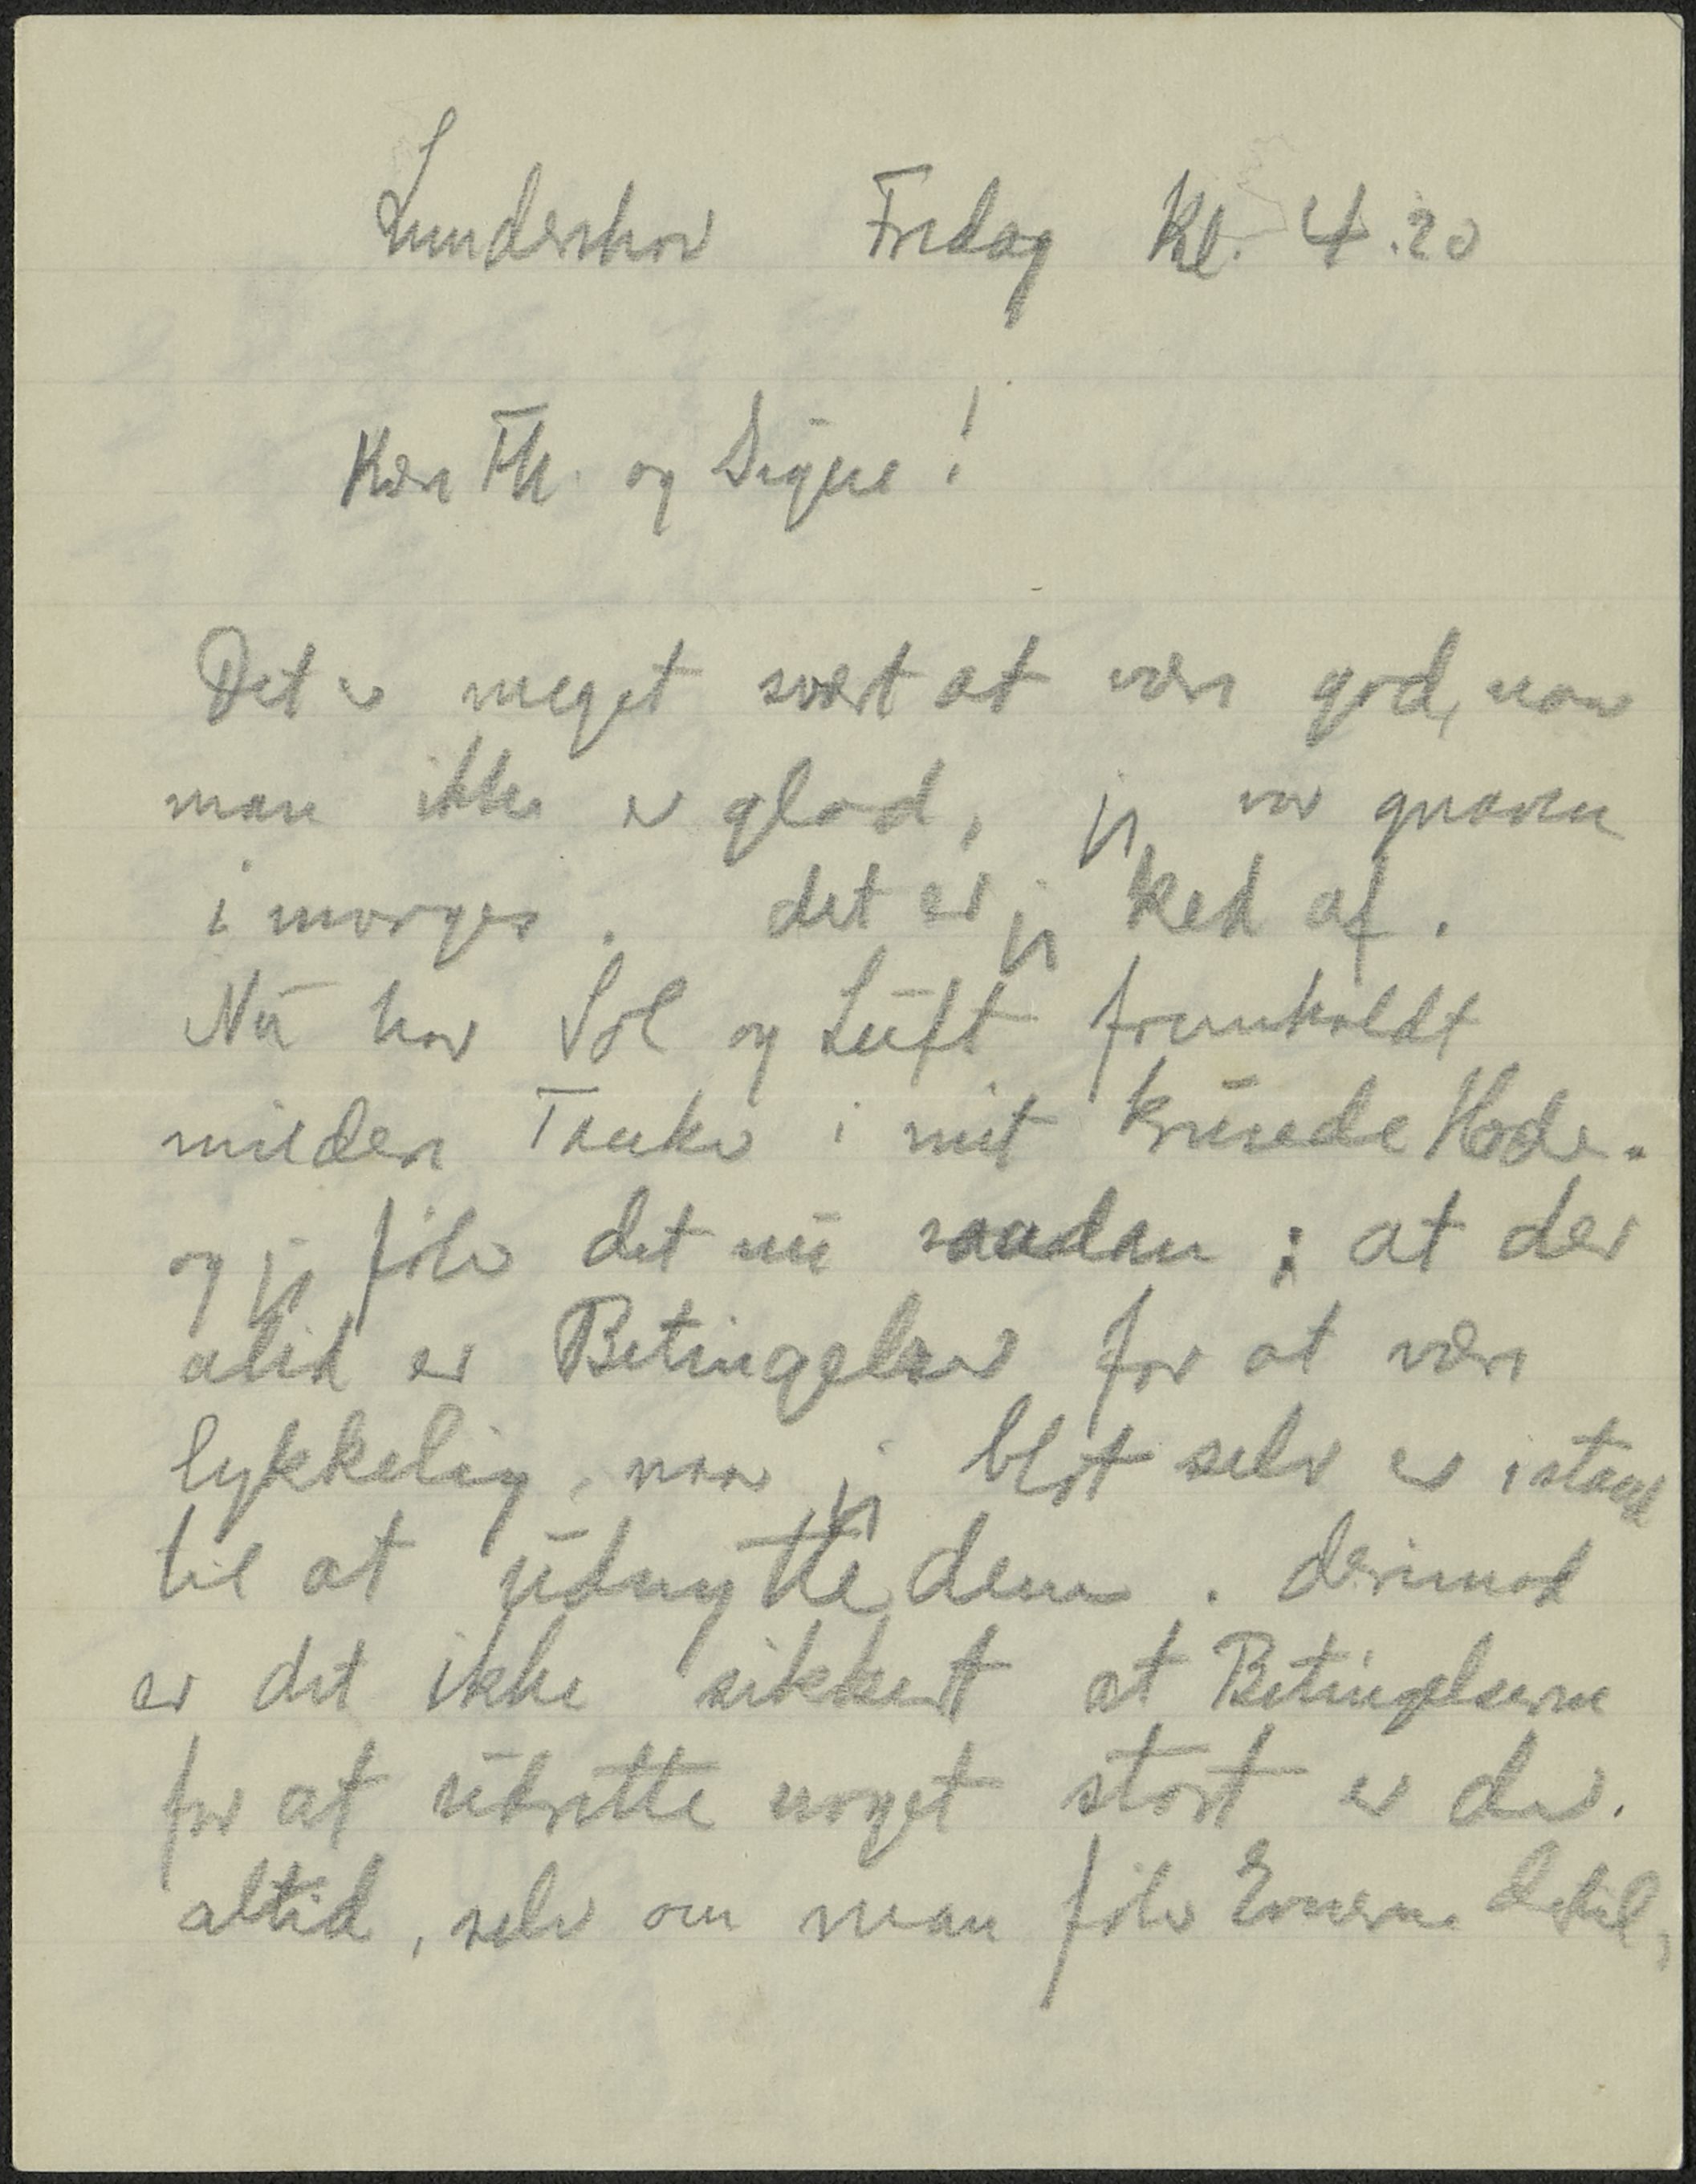 Lunderskov Fredag Kl. 4.20
Kære Th. og Signe!
Det er meget svært at være god, naar
man ikke er glad, jeg var gnaven
i morges. det er jeg ked af.
Nu har Sol og Luft fremkaldt
mildere Tanker i mit krusede Hode.
og jeg föler det nu saadan; at der
altid er Betingelser for at være
lykkelig, naar jeg blot selv er istand
til at udnytte dem. derimod
er det ikke sikkert at Betingelserne
for at udrette noget stort er der.
altid, selv om man föler Evnerne dertil,